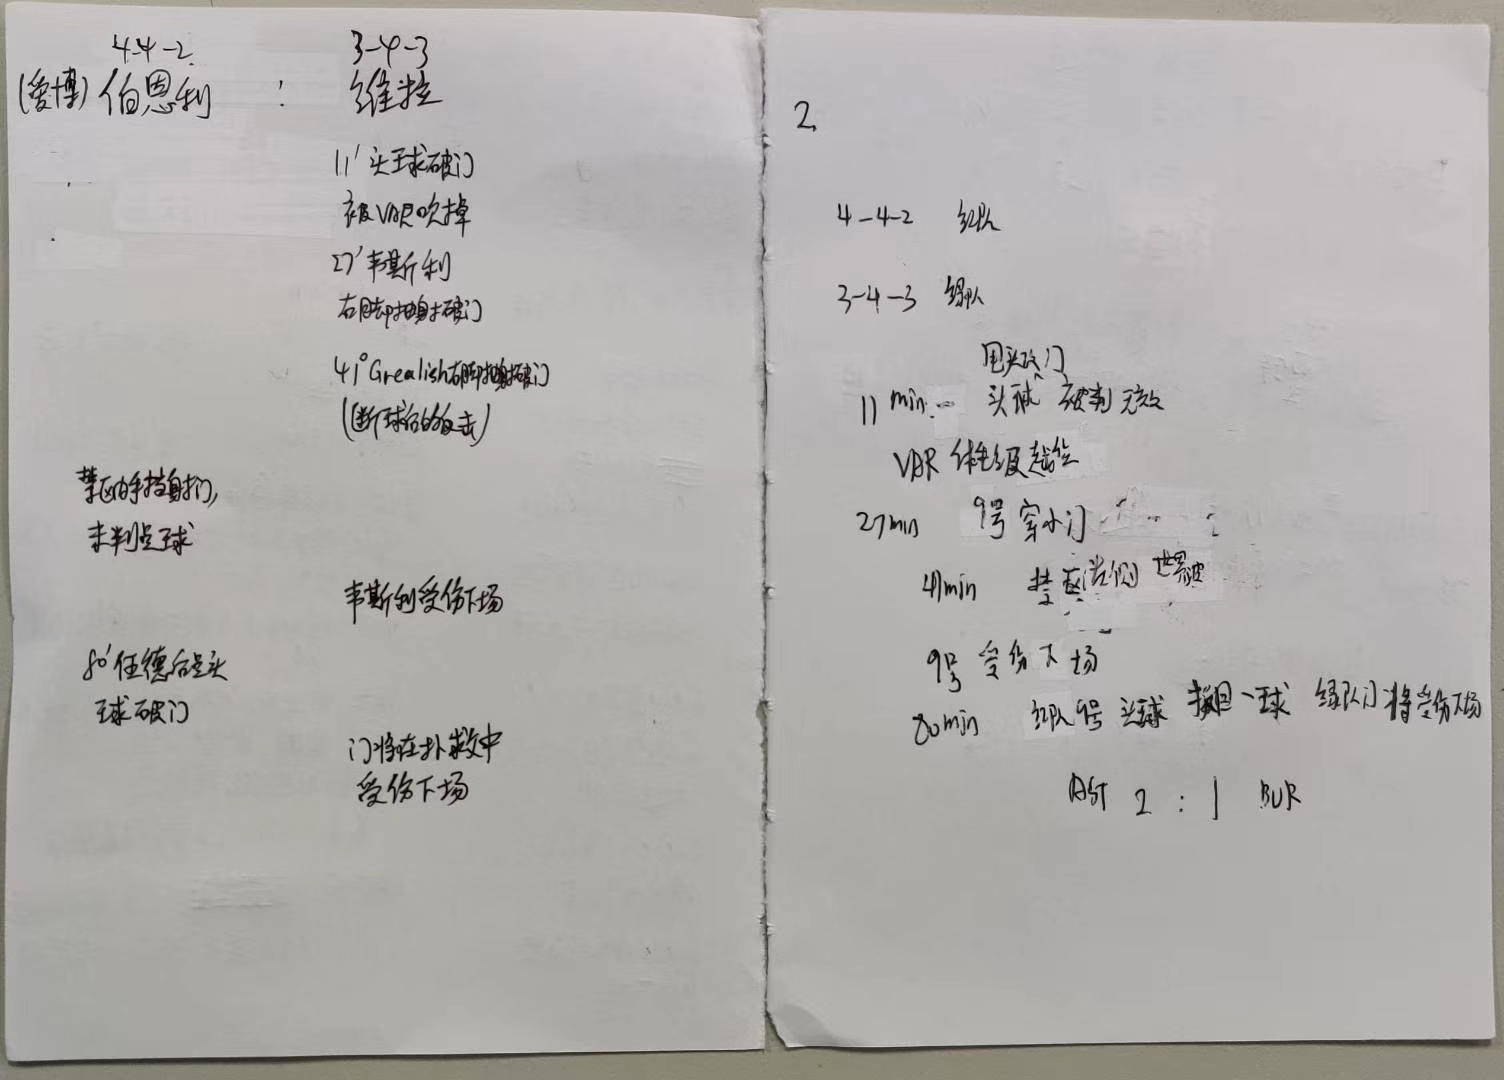 4-4-2 3-4-3
(爱博) 伯恩利 : 维拉
11' 头球破门
被VAR吹掉
27' 韦斯利
右脚抽射破门
41' Grealish右脚抽射破门
(断球后的反击)
禁区内手挡射门,
未判点球
韦斯利受伤下场
80' 伍德后点头
球破门
门将在扑救中
受伤下场
2
4-4-2 红队
3-4-3 绿队
甩头攻门
11 min 头球 被判无效
VAR 体毛级越位
27min 9号 穿小门
41min 禁区 世界波
9号 受伤下场
80min 红队9号 头球 扳回一球 绿队门将受伤下场
AST 2 : 1 BUR